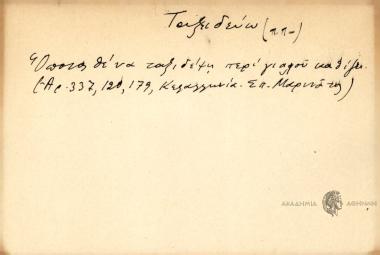 Ταξιδεύω (ππ-)
Ὅποιος θέ να ταξιδέψῃ περί γιαλοῦ καθίζει.
(Ἀρ. 337, 120, 179, Κεφαλληνία. Σπ. Μαρινᾶτος)
ΑΚΑΔΗΜΙΑ ΑΘΗΝΩΝ